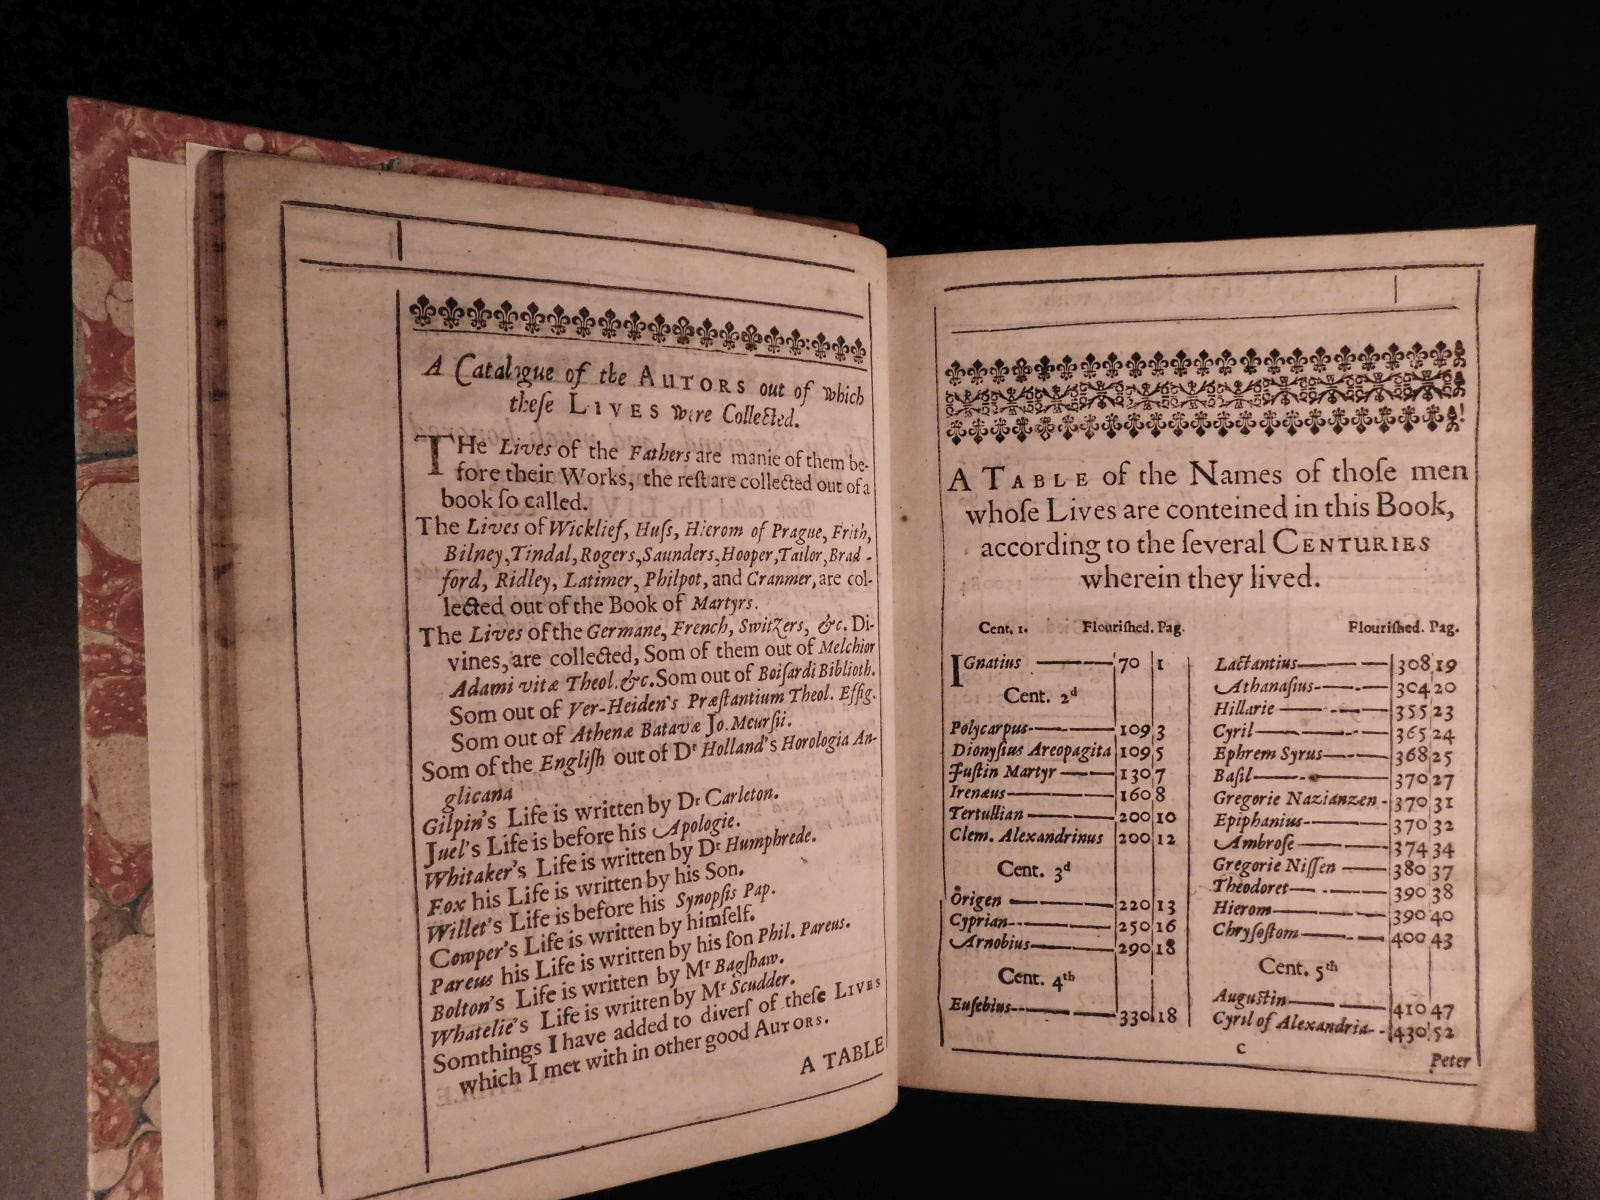 A Catalogue of the AUTORS out of which
theſe LIVES were Collected.
THe Lives of the Fathers are manie of them be-
fore their Works, the reſt are collected out of a
book ſo called.
The Lives of Wicklief, Huſs, Hierom of Prague, Frith,
Bilney, Tindal, Rogers, Saunders, Hooper, Tailor, Brad-
ford, Ridley, Latimer, Philpot, and Cranmer, are col-
lected out of the Book of Martyrs.
The Lives of the Germane, French, Switzers, &c. Di-
vines, are collected, Som of them out of Melchior
Adami vitæ Theol. &c. Som out of Boiſardi Biblioth.
Som out of Ver-Heiden's Præſtantium Theol. Effig.
Som out of Athenæ Batavæ Jo. Meurſii.
Som of the Engliſh out of Dr Holland's Horologia An-
glicana
Gilpin's Life is written by Dr Carleton.
Juel's Life is before his Apologie.
Whitaker's Life is written by Dr Humphrede.
Fox his Life is written by his Son.
Willet's Life is before his Synopſis Pap.
Cowper's Life is written by himſelf.
Pareus his Life is written by his ſon Phil. Pareus.
Bolton's Life is written by Mr Bagſhaw.
Whatelie's Life is written by Mr Scudder.
Somthings I have added to diverſ of theſe LIVES
which I met with in other good AUTORS.
A TABLE
A TABLE of the Names of thoſe men
whoſe Lives are conteined in this Book,
according to the ſeveral CENTURIES
wherein they lived.
Cent. 1. Flouriſhed. Pag.
IGnatius 70 1
Cent. 2d
Polycarpus 109 3
Dionyſius Areopagita 109 5
Juſtin Martyr 130 7
Irenæus 160 8
Tertullian 200 10
Clem. Alexandrinus 200 12
Cent. 3d
Origen 220 13
Cyprian 250 16
Arnobius 290 18
Cent. 4th
Euſebius 330 18
Flouriſhed. Pag.
Lactantius 308 19
Athanaſius 304 20
Hillarie 355 23
Cyril 365 24
Ephrem Syrus 368 25
Baſil 370 27
Gregorie Nazianzen 370 31
Epiphanius 370 32
Ambroſe 374 34
Gregorie Niſſen 380 37
Theodoret 390 38
Hierom 390 40
Chryſoſtom 400 43
Cent. 5th
Auguſtin 410 47
Cyril of Alexandria 430 52
C
Peter